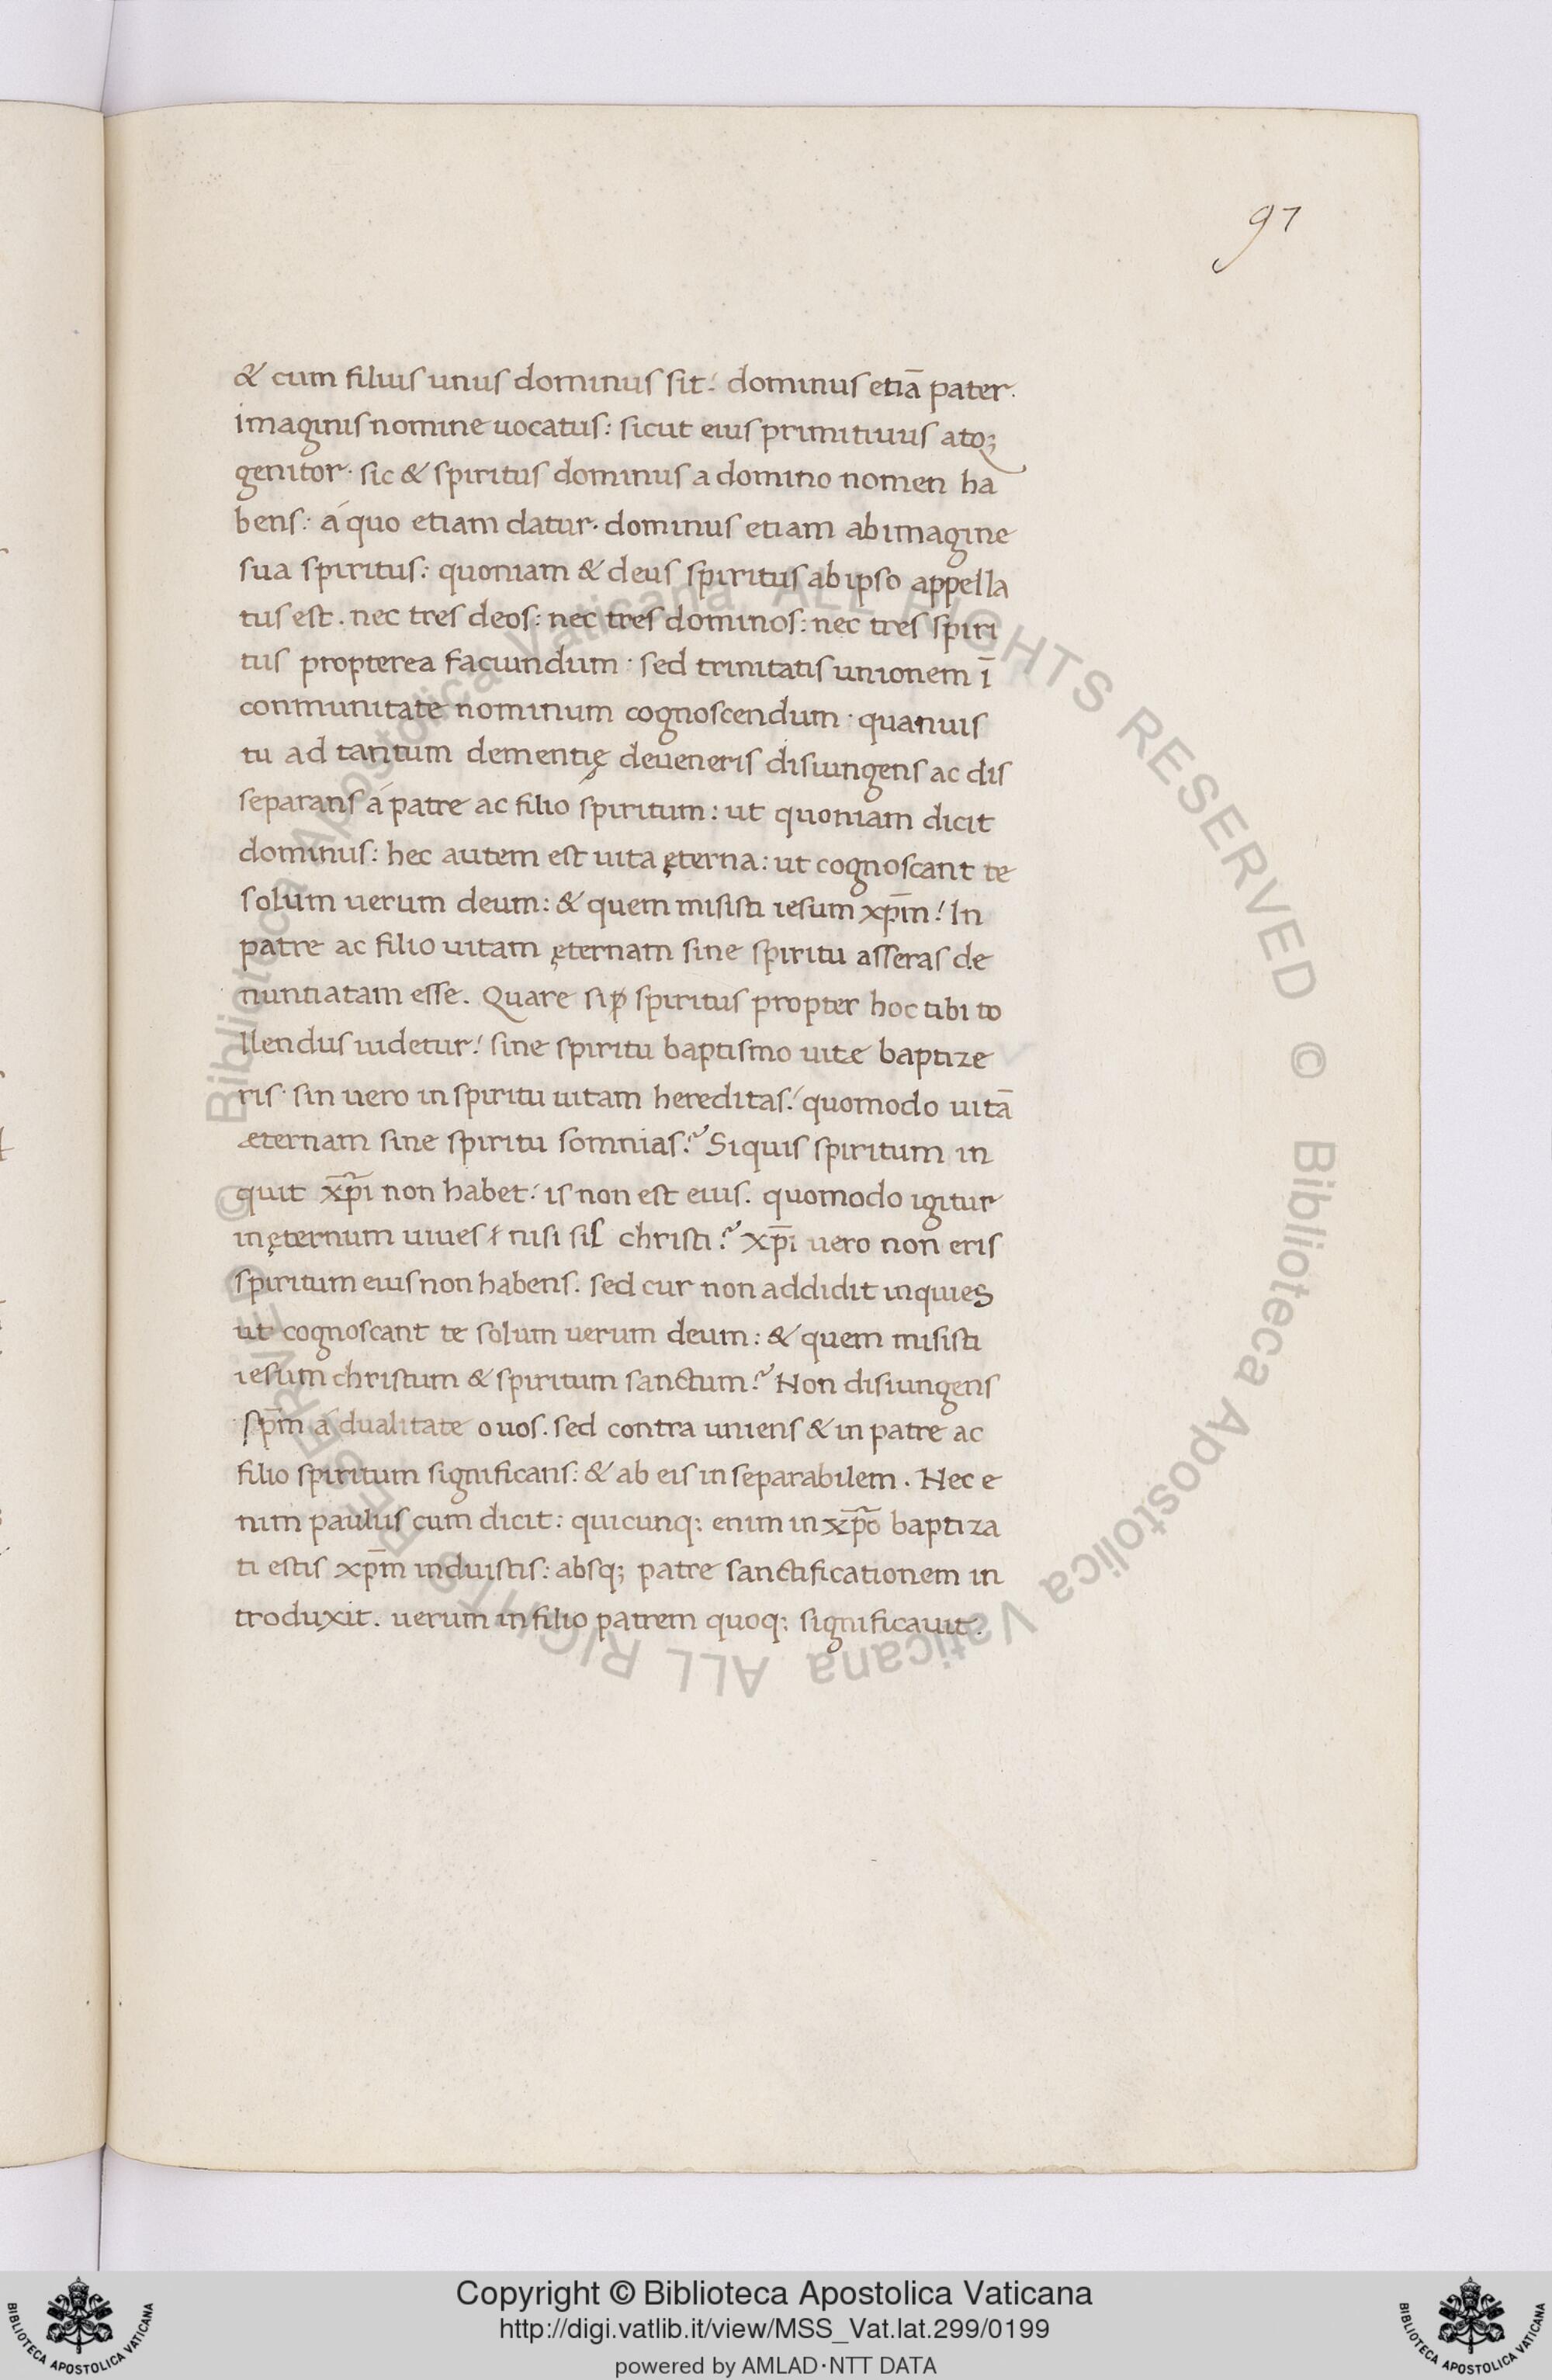 97
& cum filius unus dominus sit: dominus etiā pater.
imaginis nomine uocatus: sicut eius primitiuus atq;
genitor. sic & spiritus dominus a domino nomen ha
bens: á quo etiam datur. dominus etiam ab imagine
sua spiritus: quoniam & deus spiritus ab ipso appella
tus est. nec tres deos: nec tres dominos: nec tres spiri
tus propterea faciundum. sed trinitatis unionem ī
conmunitate nominum cognoscendum. quanuis
tu ad tantum dementię deueneris disiungens ac dis
separans á patre ac filio spiritum: ut quoniam dicit
dominus: hec autem est uita ęterna: ut cognoscant te
solum uerum deum: & quem misisti iesum xp̄m! In
patre ac filio uitam ęternam sine spiritu asseras de
nuntiatam esse. Quare si ꝓ spiritus propter hoc tibi to
llendus uidetur! sine spiritu baptismo uitæ baptize
ris. sin uero in spiritu uitam hereditas! quomodo uitā
æternam sine spiritu somnias? Si quis spiritum in
quit xp̄i non habet! is non est eius. quomodo igitur
in ęternum uiues ł nisi sis christi? xp̄i uero non eris
spiritum eius non habens. sed cur non addidit inquies
ut cognoscant te solum uerum deum: & quem misisti
iesum christum & spiritum sanctum? Non disiungens
sp̄m á dualitate ouos. sed contra uniens & in patre ac
filio spiritum significans: & ab eis inseparabilem. Nec e
nim paulus cum dicit: quicunq; enim in xp̄o baptiza
ti estis xp̄m induistis: absq; patre sanctificationem in
troduxit. uerum in filio patrem quoq; significauit.
© Biblioteca Apostolica Vaticana ALL RIGHTS RESERVED © Biblioteca Apostolica Vaticana ALL RIGHTS RESERVED
Copyright © Biblioteca Apostolica Vaticana
http://digi.vatlib.it/view/MSS_Vat.lat.299/0199
powered by AMLAD·NTT DATA
BIBLIOTECA APOSTOLICA VATICANA
BIBLIOTECA APOSTOLICA VATICANA